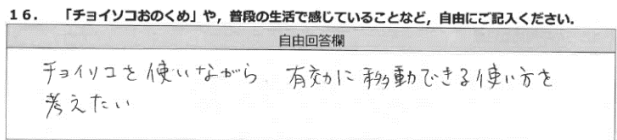 16. 「チョイソコおのくめ」や，普段の生活で感じていることなど，自由にご記入ください。
自由回答欄
チョイソコを使いながら 有効に移動できる使い方を
考えたい